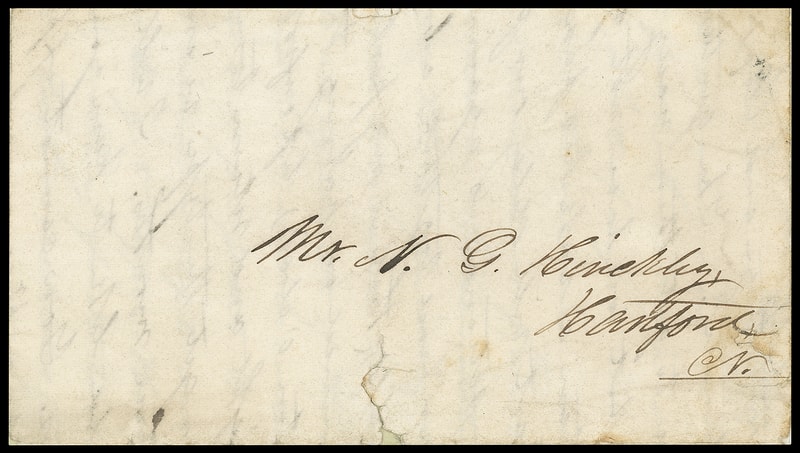 Mr. N. G. Hinckley,
Hartford
CN.